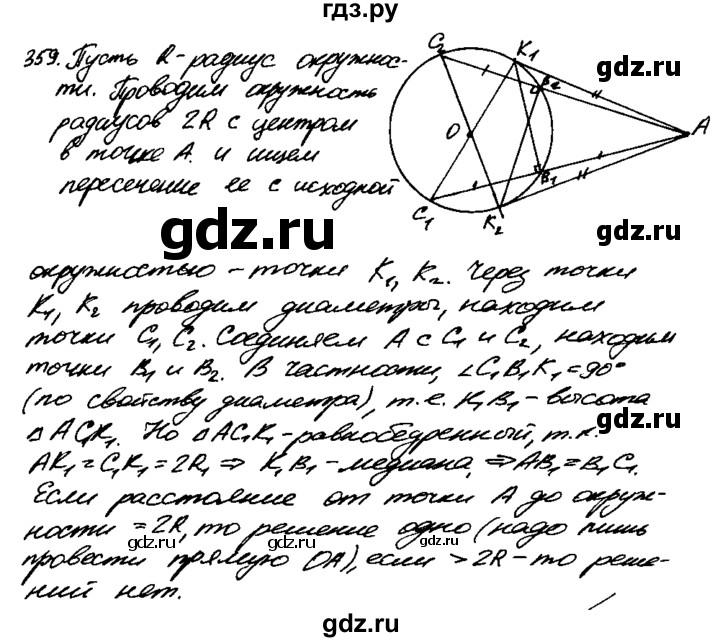 гдз.ру
359. Пусть R-радиус окружнос-
ти. Проводим окружность
радиусов 2R с центром
в точке A. и ищем
пересечение ее с исходной
C₂
K₁
B₂
O
A
B₁
C₁
K₂
gdz.ru
gdz.ru
окружностью – точки K₁, K₂. Через точки
K₁, K₂ проводим диаметры, находим
точки C₁, C₂. Соединяем A с C₁ и C₂, находим
точки B₁ и B₂. В частности, ∠C₁B₁K₁=90°
(по свойству диаметра), т.е. K₁B₁-высота
△AC₁K₁. Но △AC₁K₁-равнобедренный, т.к.
AK₁=C₁K₁=2R₁ ⇒ K₁B₁-медиана, ⇒AB₁=B₁C₁.
Если расстояние от точки A до окруж-
ности =2R, то решение одно (надо лишь
провести прямую OA), если >2R-то реше-
ний нет.
gdz.ru
gdz.ru
gdz.ru
gdz.ru
gdz.ru
gdz.ru
gdz.ru